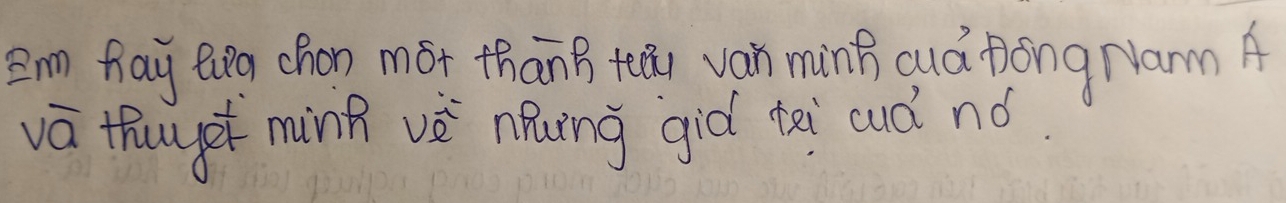 Em hãy lựa chọn một thành tựu văn minh của Đông Nam Á
và thuyết minh về những giá trị của nó.